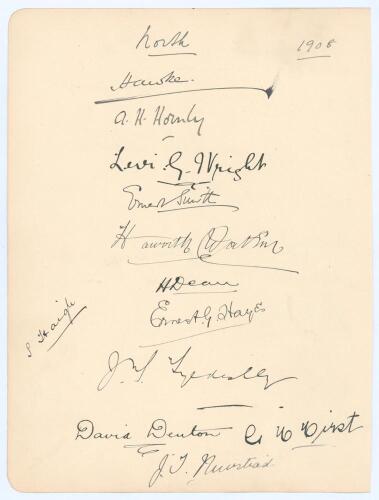 North 1908
Hawke.
A. H. Hornby
Levi. G. Wright
Ernest Smith
Haworth Watson
H Dean
Ernest G. Hayes
S Haigh
J. T. Tyldesley
David Denton G H Hirst
J. T. Newstead